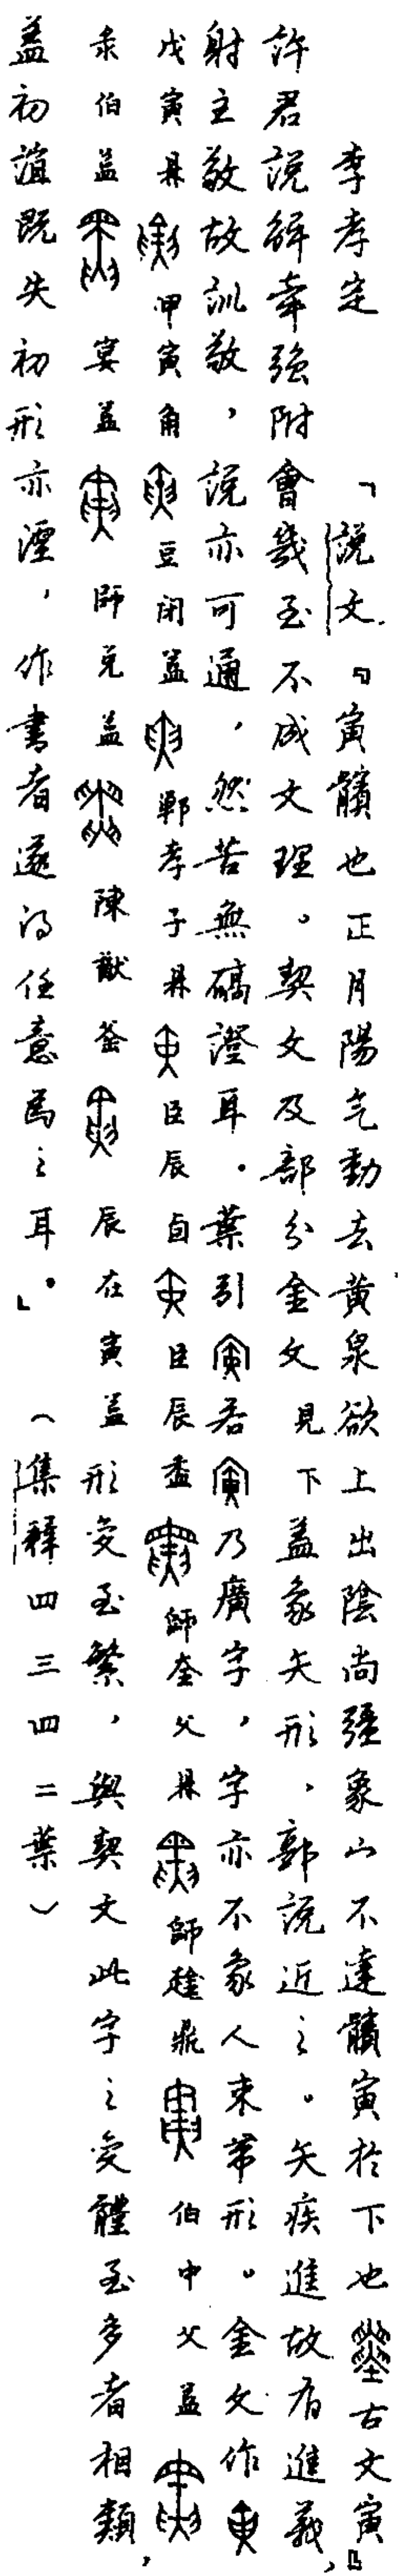 李孝定　「說文『寅髕也正月陽气動去黃泉欲上出陰尚彊象宀不達髕寅於下也古文寅』
許君說解牽強附會幾至不成文理。契文及部分金文見下蓋象矢形，郭說近之。矢疾進故有進義，
射主敬故訓敬，說亦可通，然苦無碻證耳。葉引若乃廣字，字亦不象人束帶形。金文作
戊寅鼎甲寅角豆閉𣪘鄲孝子鼎臣辰卣臣辰盉師奎父鼎師趛鼎伯中父𣪘
彔伯𣪘宴𣪘師兌𣪘陳猷釜辰在寅𣪘形變至繁，與契文此字之變體至多者相類，
蓋初誼既失初形亦湮，作書者遂得任意為之耳。」　（集釋四三四二葉）